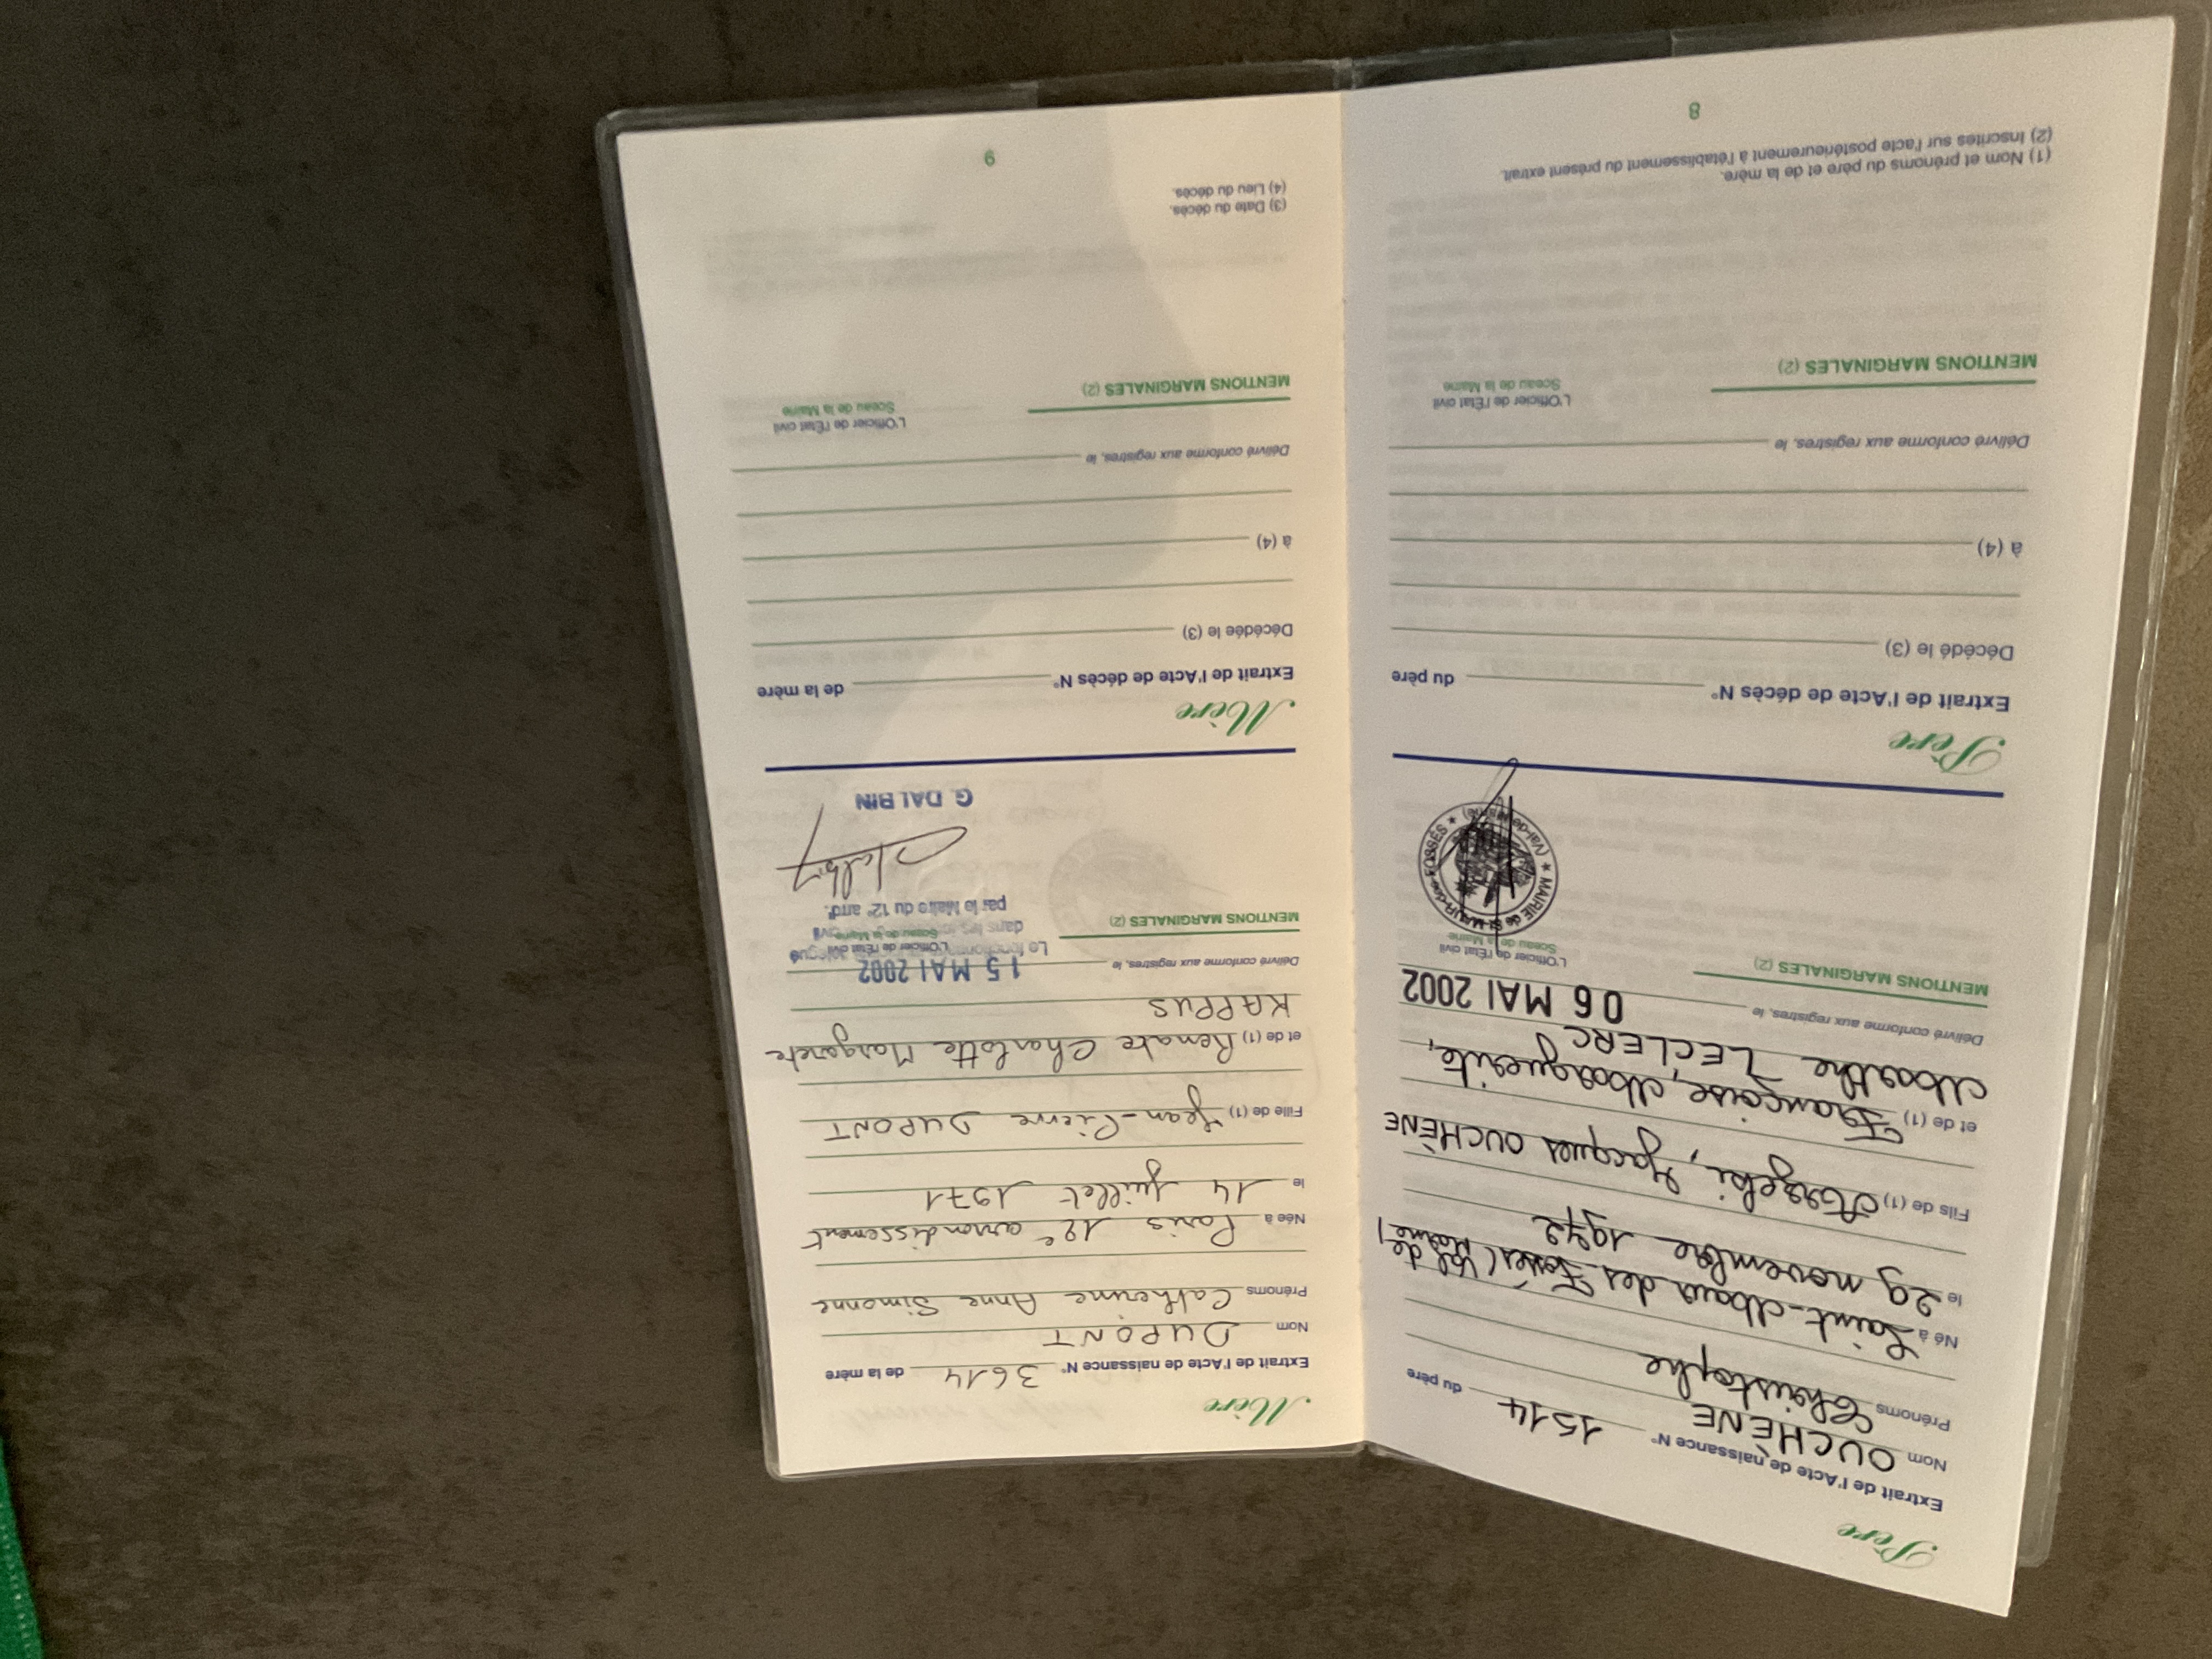 Père
Extrait de l'Acte de naissance N° 1514 du père
Nom OUCHÈNE
Prénoms Christophe
Né à Saint-Maur des Fossés (Val de Marne)
le 29 novembre 1972
Fils de (1) Jacques OUCHÈNE
et de (1) Françoise, Marguerite,
Marthe LECLERC
Délivré conforme aux registres, le 06 MAI 2002
MENTIONS MARGINALES (2)
L'Officier de l'État civil
Sceau de la Mairie
★ MAIRIE de St-MAUR-des-FOSSÉS ★ (Val-de-Marne)
Père
Extrait de l'Acte de décès N° du père
Décédé le (3)
à (4)
Délivré conforme aux registres, le
MENTIONS MARGINALES (2)
L'Officier de l'État civil
Sceau de la Mairie
(1) Nom et prénoms du père et de la mère.
(2) Inscrites sur l'acte postérieurement à l'établissement du présent extrait.
8
Mère
Extrait de l'Acte de naissance N° 3614 de la mère
Nom DUPONT
Prénoms Catherine Anne Simonne
Née à Paris 12e arrondissement
le 14 juillet 1971
Fille de (1) Jean-Pierre DUPONT
et de (1) Renate Charlotte Margarete
KAPPUS
Délivré conforme aux registres, le 15 MAI 2002
L'Officier de l'État civil
Sceau de la Mairie
Le fonctionnaire délégué
dans les
par le Maire du 12e arrdt.
MENTIONS MARGINALES (2)
G. DALBIN
Mère
Extrait de l'Acte de décès N° de la mère
Décédée le (3)
à (4)
Délivré conforme aux registres, le
MENTIONS MARGINALES (2)
L'Officier de l'État civil
Sceau de la Mairie
(3) Date du décès.
(4) Lieu du décès.
9